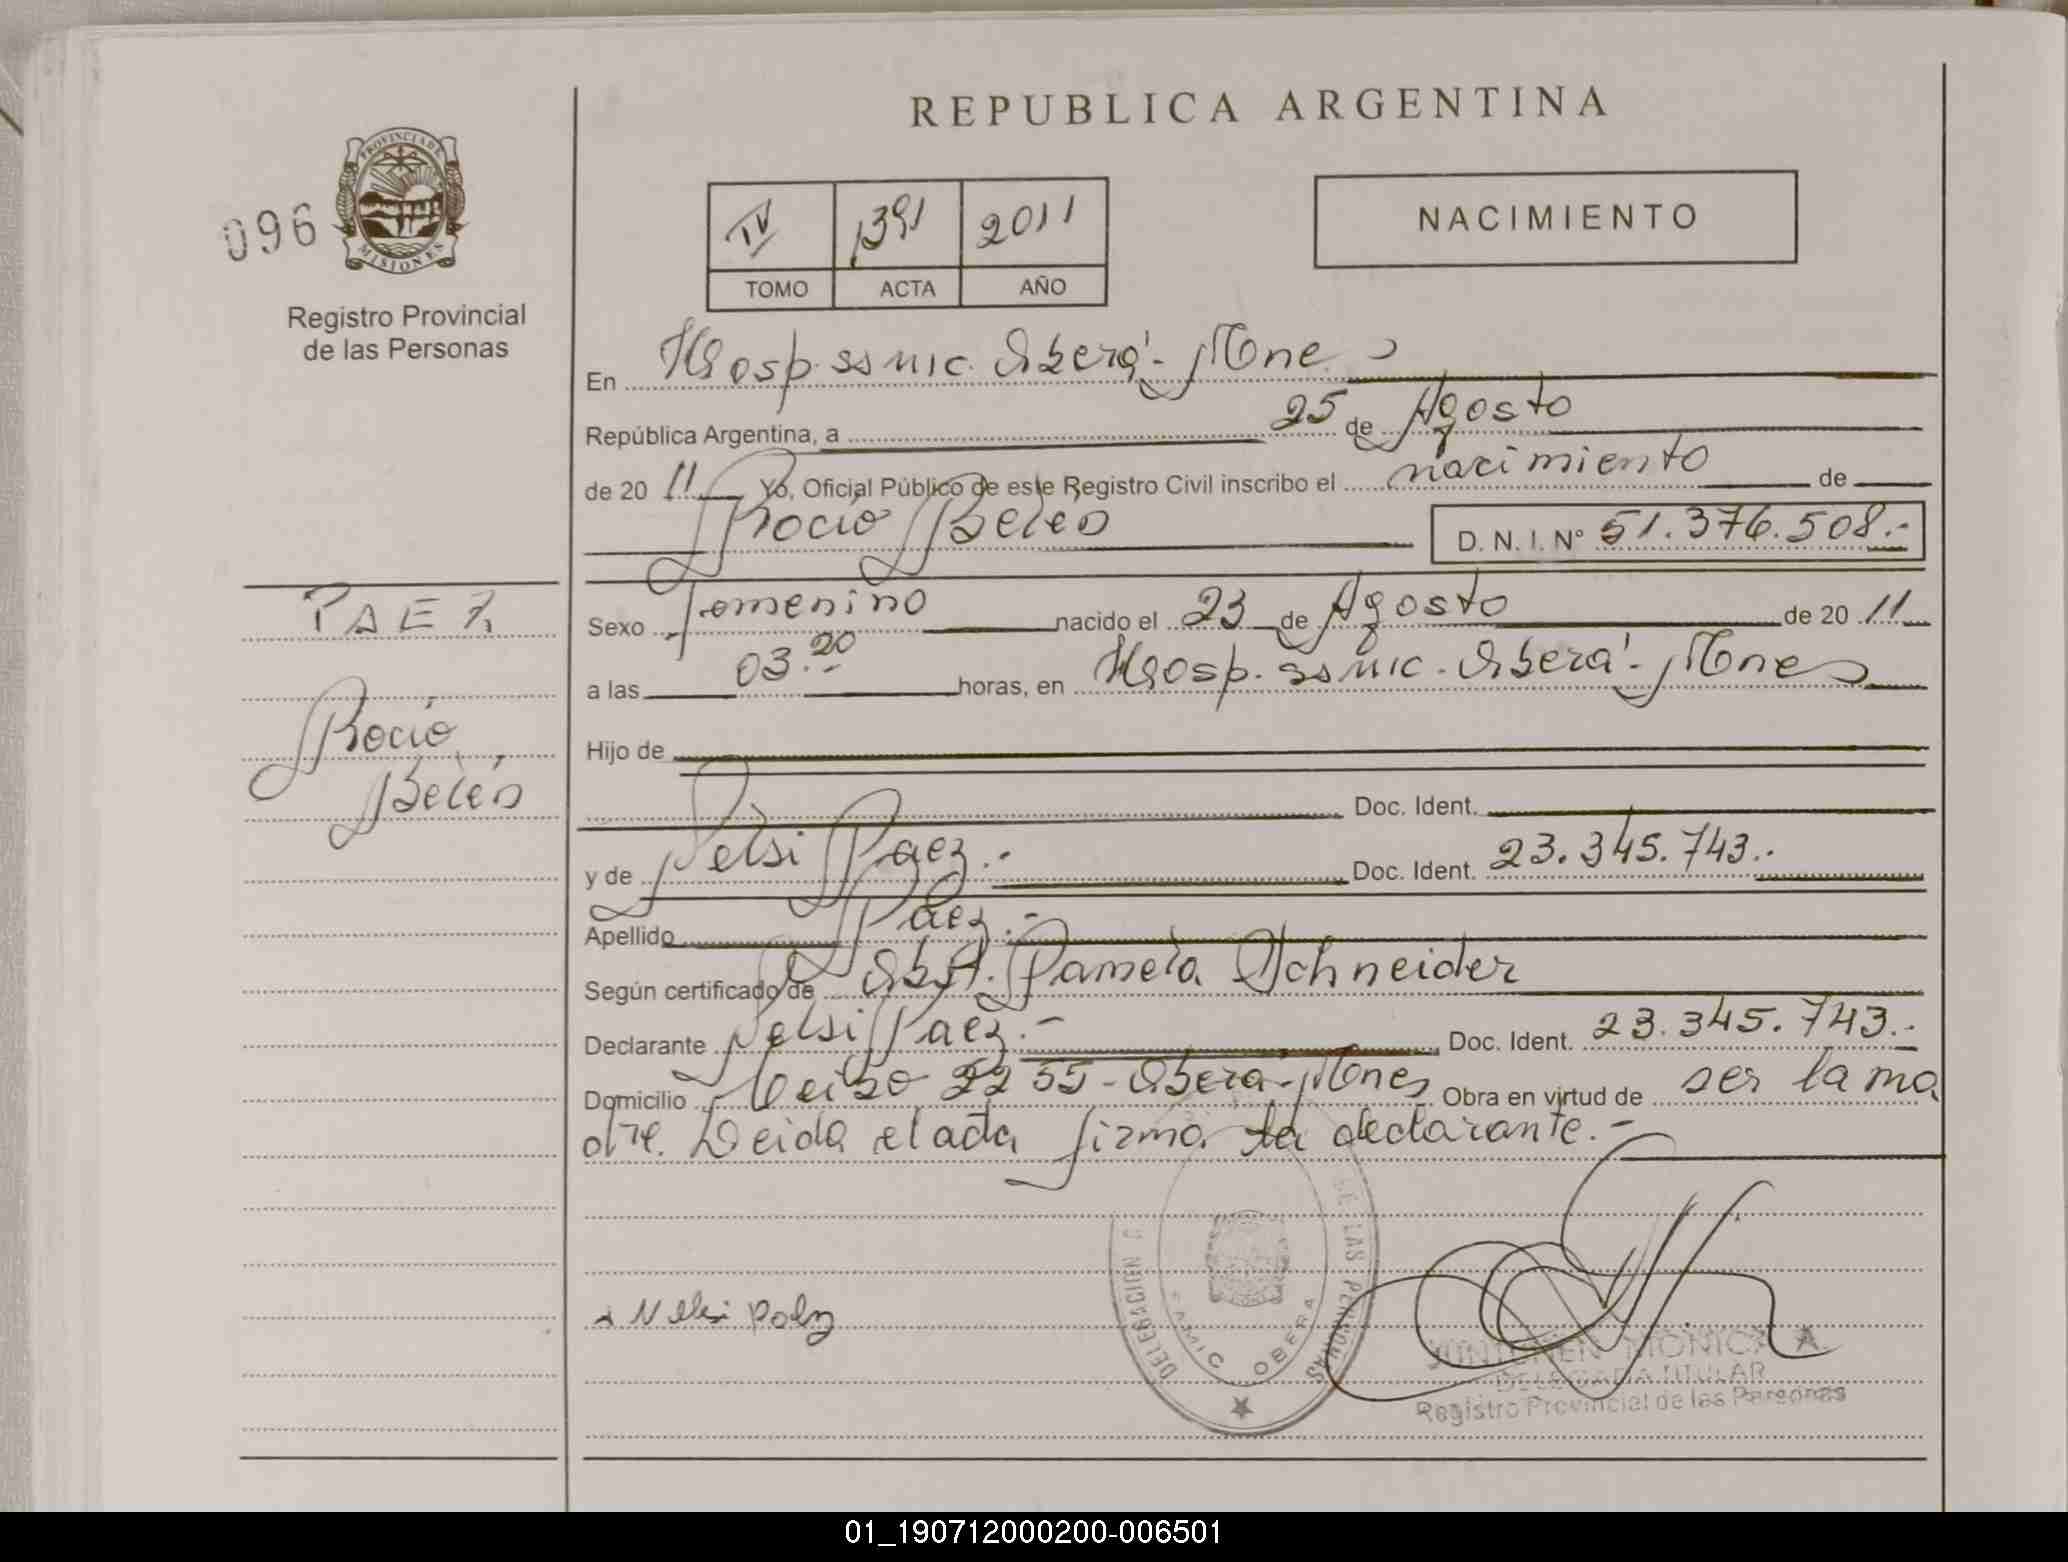 REPUBLICA ARGENTINA
096
PROVINCIA DE MISIONES
Registro Provincial
de las Personas
IV 1391 2011
TOMO ACTA AÑO
NACIMIENTO
En Hosp. SSMIC. Oberá - Mnes
República Argentina, a 25 de Agosto
de 20 11 Yo, Oficial Público de este Registro Civil inscribo el nacimiento de
Rocío Belén D. N. I. N° 51.376.508.-
PAEZ
Rocío
Belén
Sexo femenino nacido el 23 de Agosto de 20 11
a las 03.20 horas, en Hosp. SSMIC. Oberá - Mnes
Hijo de
Doc. Ident.
y de Nelsi Paez.- Doc. Ident. 23.345.743.-
Apellido Paez.-
Según certificado de Obst. Pamela Schneider
Declarante Nelsi Paez.- Doc. Ident. 23.345.743.-
Domicilio 2255 - Oberá - Mnes Obra en virtud de ser la ma
dre. Leida el acta firma la declarante.-
Nelsi Paez
DELEGACION DE LAS PERSONAS
SAMIC OBERA
MONICA A.
DELEGADA TITULAR
Registro Provincial de las Personas
01_190712000200-006501